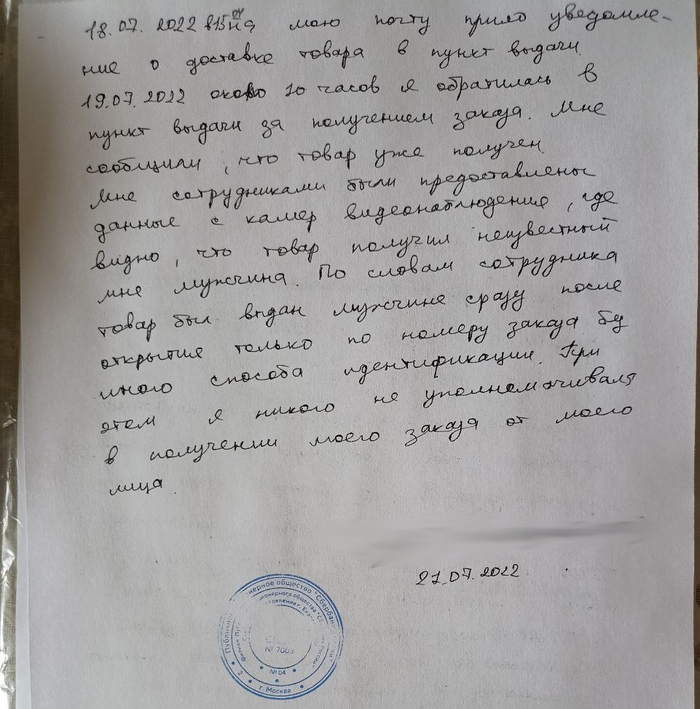 18.07.2022 в 15 01 на мою почту пришло уведомле-
ние о доставке товара в пункт выдачи.
19.07.2022 около 10 часов я обратилась в
пункт выдачи за получением заказа. Мне
сообщили, что товар уже получен.
Мне сотрудниками были предоставлены
данные с камер видеонаблюдение, где
видно, что товар получил неизвестный
мне мужчина. По словам сотрудника
товар был выдан мужчине сразу после
открытия только по номеру заказа без
иного способа идентификации. При
этом я никого не уполномачивала
в получении моего заказа от моего
лица.
21.07.2022
Публичное акционерное общество "Сбербанк
№ 7003
№ 04
2 * г. Москва *